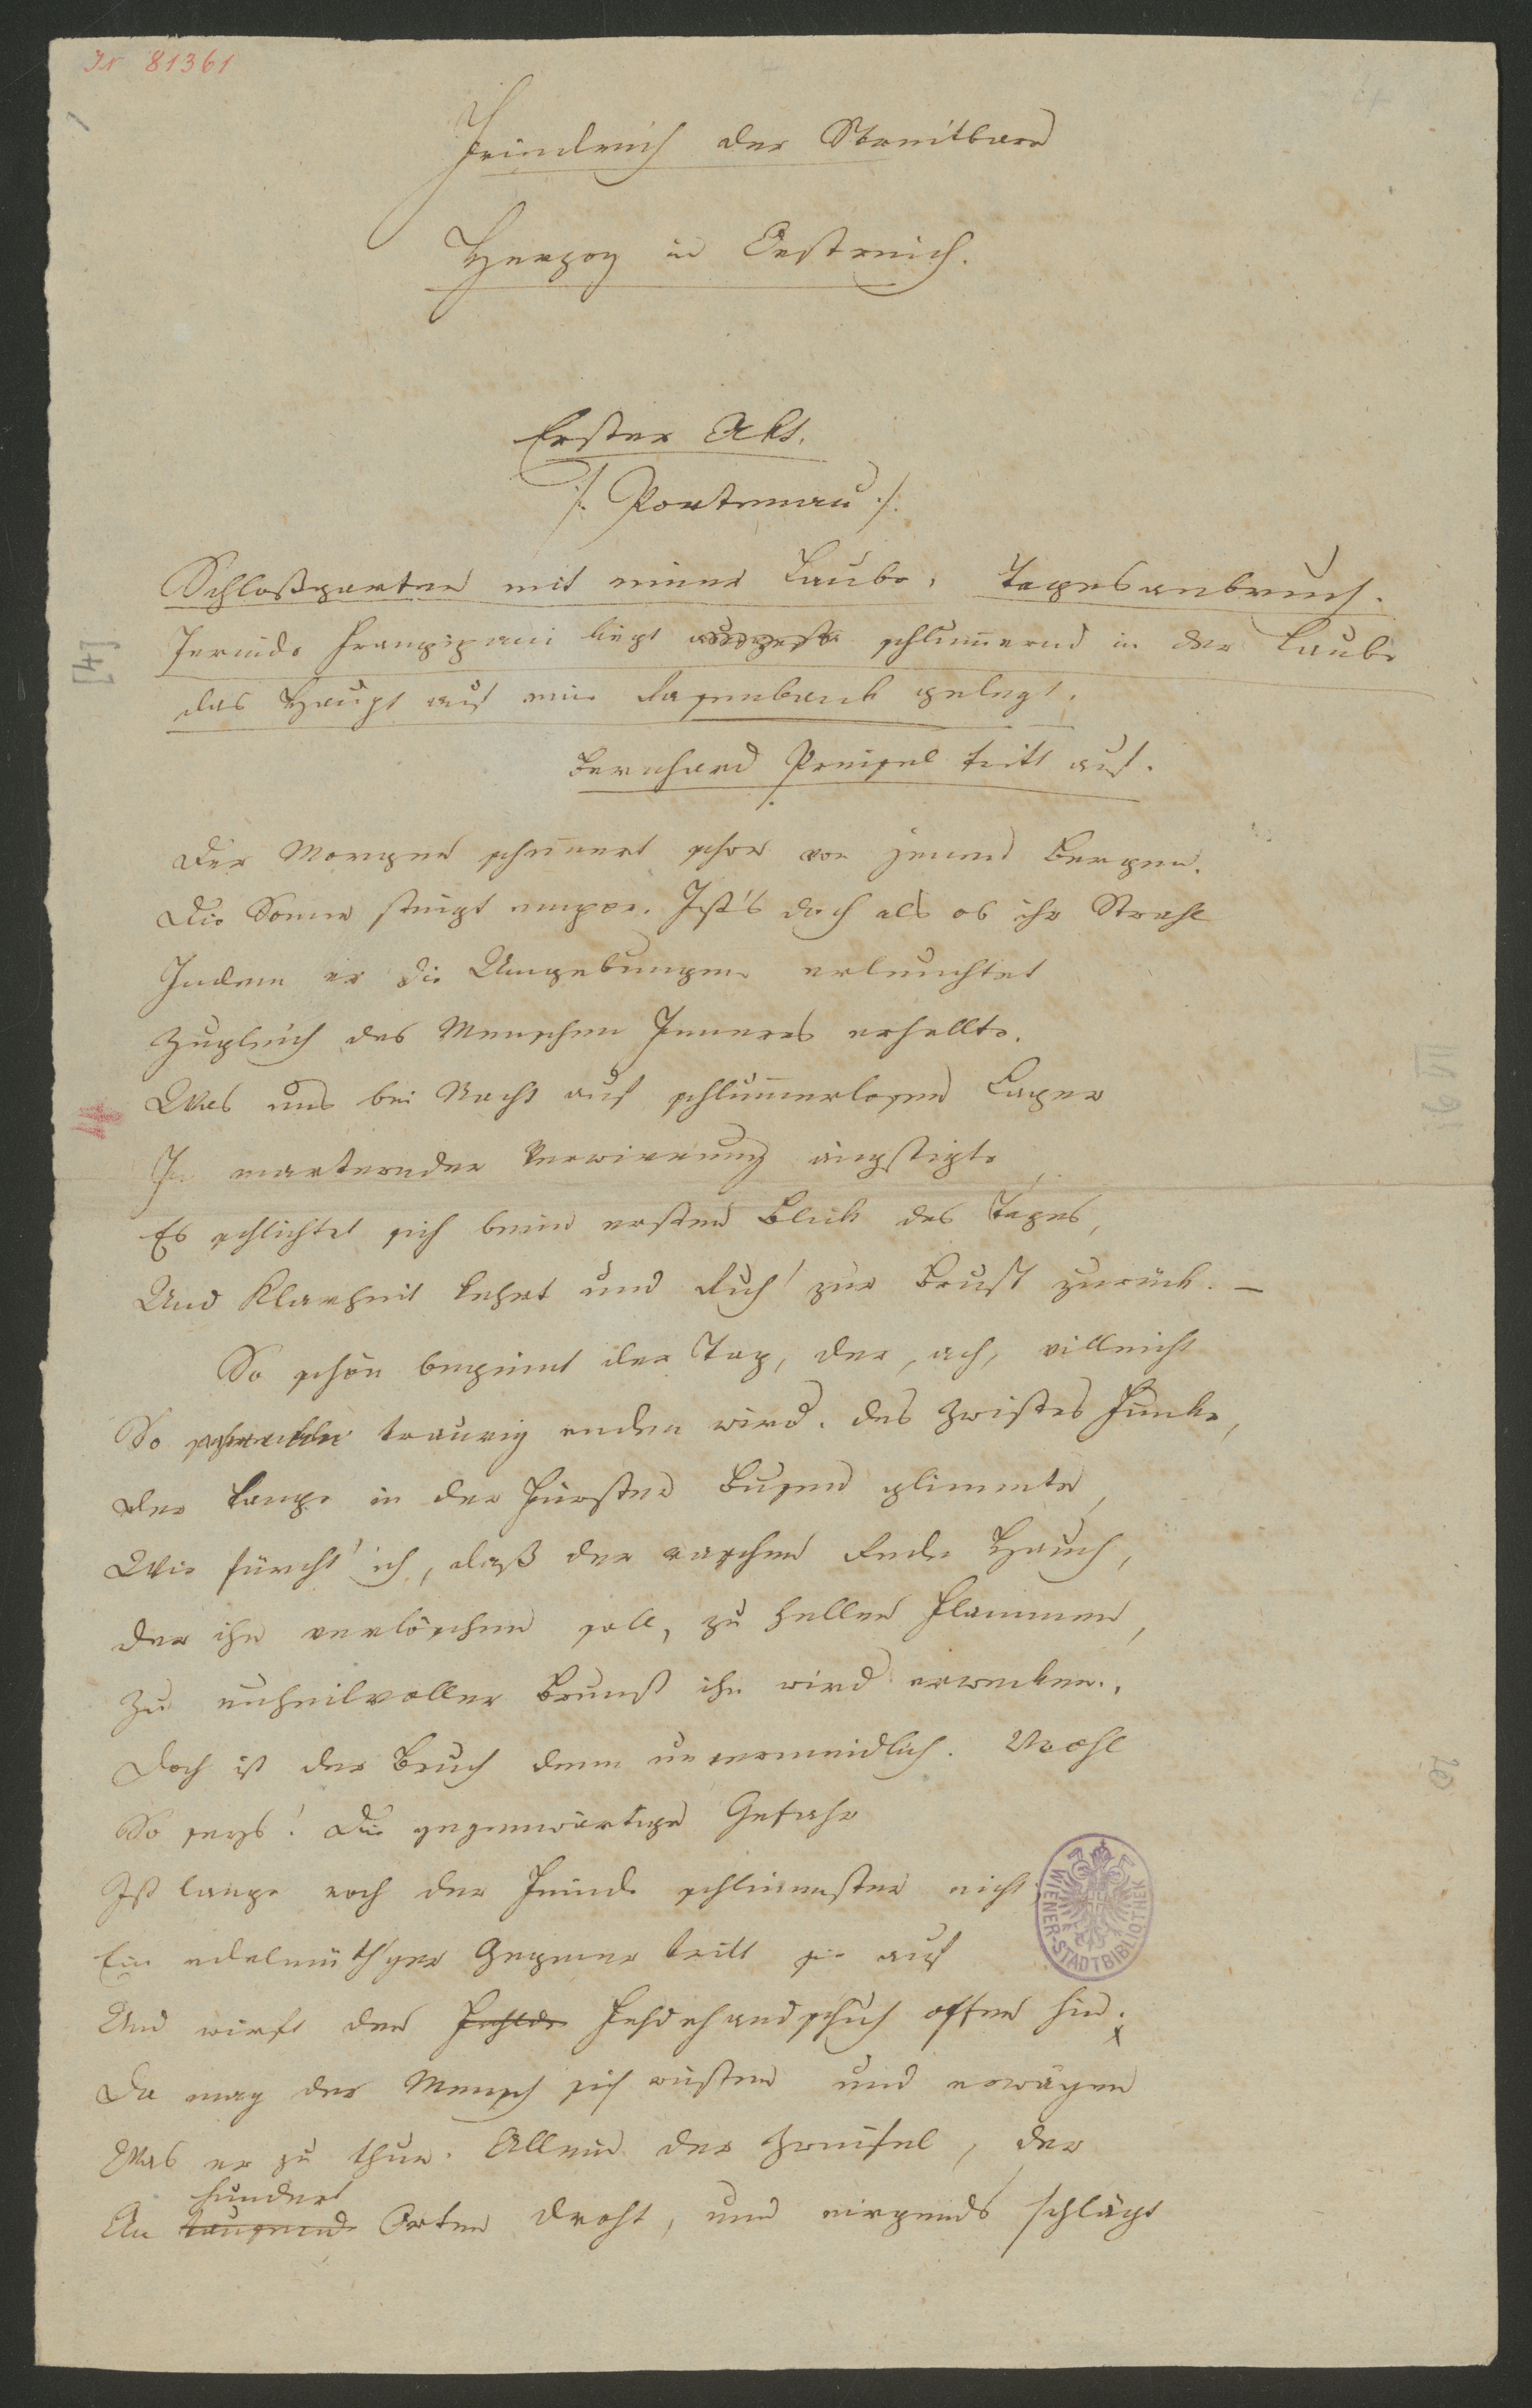 JN 81361
Friedrich der Streitbare
Herzog in Oestreich.
Erster Akt.
/: Portenau :/
Schloßgarten mit einer Laube. Tagesanbruch.
Jerinde Frangipani liegt schlum̄ernd in der Laube
das Haupt auf eine Rasenbank gelegt.
[4]
Bernhard Preisel tritt auf.
Der Morgen schim̄ert schon von jenen Bergen.
Die Sonne steigt empor. Ist's doch als ob ihr Strahl
Indem er die Umgebungen erleuchtet
Zugleich des Menschen Inneres erhellte.
Was uns bei Nacht auf schlum̄erlosem Lager
In marternder Verwirrung ängstigte
Es schlichtet sich beim ersten Blick des Tages,
Und Klarheit kehrt und Ruh' zur Brust zurück. –
So schön begin̄t der Tag, der, ach, villeicht
So traurig enden wird. Des Zwistes Funke,
Der lange in der Fürsten Busen glimmte,
Wie fürcht' ich, daß der raschen Rede Hauch,
Der ihn verlöschen soll, zu hellen Flammen,
Zu unheilvoller Brunst ihn wird erwecken.
Doch ist der Bruch denn unvermeidlich. Wohl
So seys! Die gegenwärtige Gefahr
Ist lange noch der Feinde schlimmster nicht;
Ein edelmüth'ger Gegner tritt sie auf
Und wirft den Fehde Fehdehandschuh offen hin;
Da mag der Mensch sich rüsten und erwägen
Was er zu thun. Allein der Zweifel, der
hundert
An tausend Orten droht, und nirgends schlägt
WIENER-STADTBIBLIOTHEK